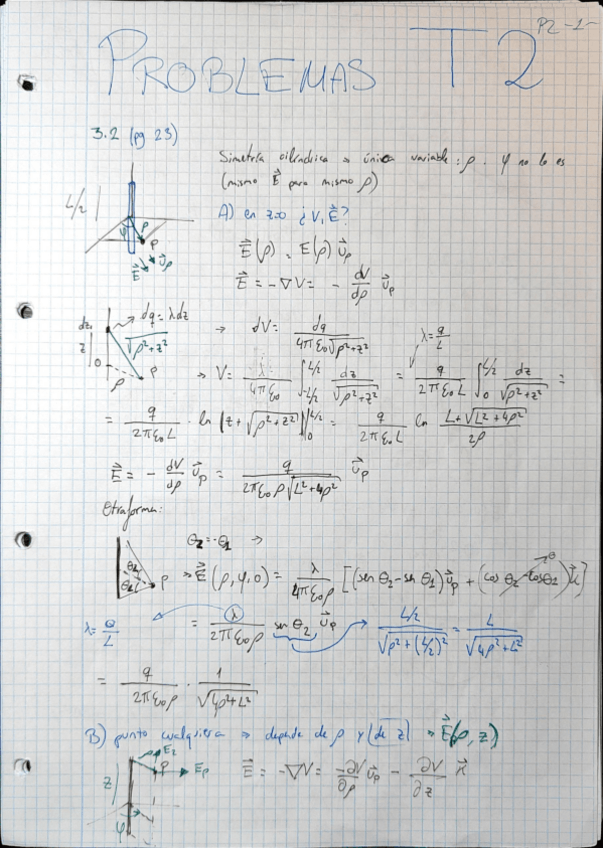 P2 -1-
PROBLEMAS T2
3.2 (pg 23)
Simetría cilíndrica → única variable: ρ. φ no lo es
(mismo E⃗ para mismo ρ)
L/2
φ ρ P
E⃗ u⃗ρ
A) en z=0 ¿V, E⃗?
E⃗(ρ) = E(ρ) u⃗ρ
E⃗ = -∇V = - dV/dρ u⃗ρ
dz → dq = λdz
z √ρ²+z²
0 ρ P
→ dV = dq / 4πε₀√ρ²+z²
λ = q/L
→ V = λ/4πε₀ ∫_{-L/2}^{L/2} dz/√ρ²+z² = q/2πε₀L ∫_0^{L/2} dz/√ρ²+z² =
= q/2πε₀L · ln |z + √ρ²+z²| |_0^{L/2} = q/2πε₀L ln L+√L²+4ρ² / 2ρ
E⃗ = - dV/dρ u⃗ρ = q / 2πε₀ρ√L²+4ρ² u⃗ρ
Otra forma:
θ₂ = -θ₁ →
θ₂ θ₁ P
→ E⃗(ρ, φ, 0) = λ/4πε₀ρ [(sen θ₂ - sen θ₁) u⃗ρ + (cos θ₂ - cos θ₁) k⃗] 0
λ = Q/L
= λ/2πε₀ρ sen θ₂ u⃗ρ → L/2 / √ρ²+(L/2)² = L / √4ρ²+L²
= q/2πε₀ρ · 1/√4ρ²+L²
B) punto cualquiera → depende de ρ y (de z) → E⃗(ρ, z)
z E_z P Eρ
φ
E⃗ = -∇V = -∂V/∂ρ u⃗ρ - ∂V/∂z k⃗